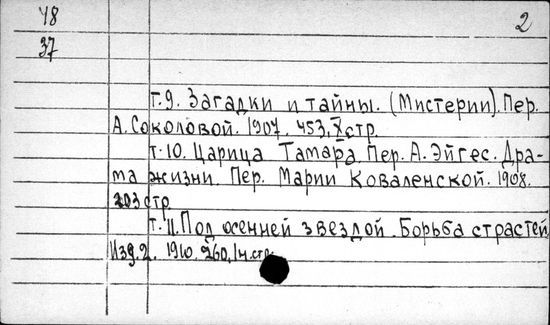 48 2
37
т.9. Загадки и тайны. (Мистерии). Пер.
А. Соколовой. 1907. 453, X стр.
т.10. Царица Тамара. Пер. А. Эйгес. Дра-
ма жизни. Пер. Марии Коваленской. 1908.
203 стр.
т.11. Под осенней звездой. Борьба страстей.
Изд.2. 1910. 260, 1н.стр.